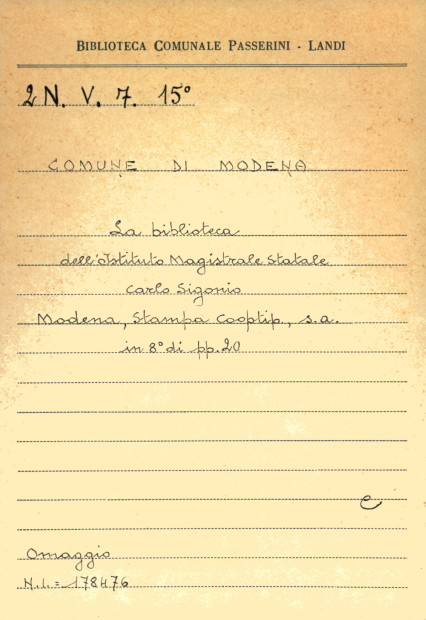 BIBLIOTECA COMUNALE PASSERINI - LANDI
2 N. V. 7. 15°
COMUNE DI MODENA
La biblioteca
dell'Istituto Magistrale Statale
Carlo Sigonio
Modena, Stampa Cooptip, s.a.
in 8° di pp. 20
e
Omaggio
N.I. = 178476